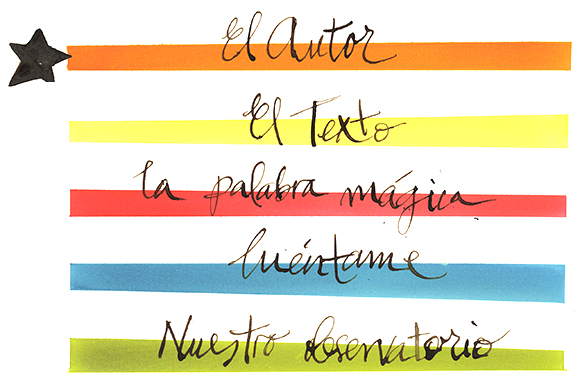 El Autor
El Texto
la palabra mágica
Cuéntame
Nuestro observatorio